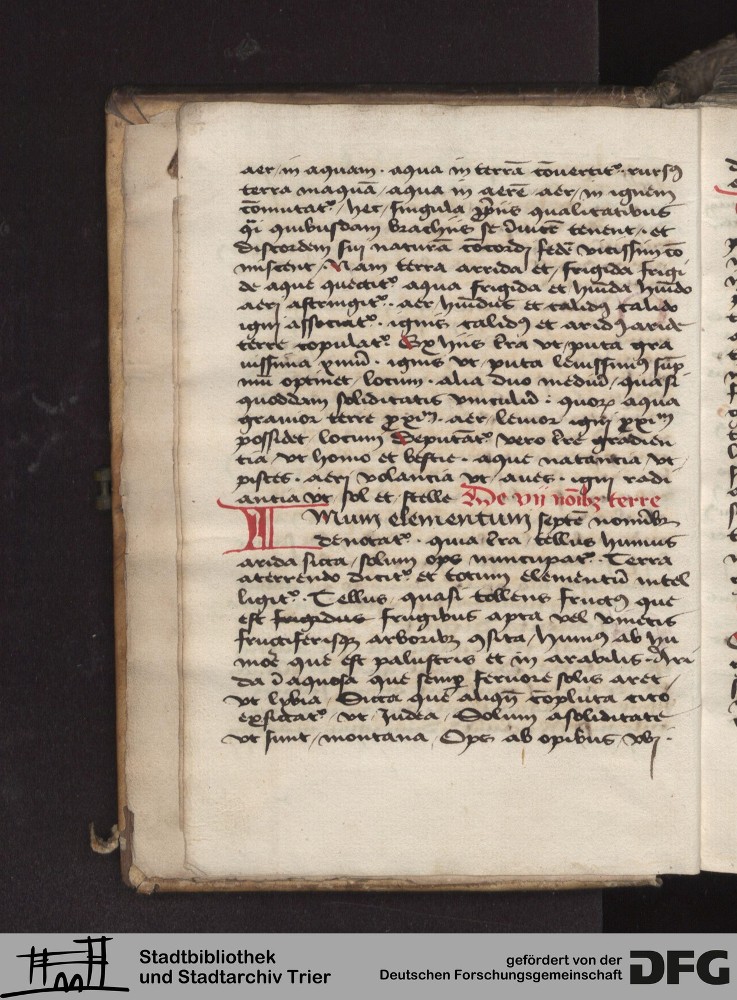 aer in aquam · aqua in terrā cōuertit᷒ · rursꝰ
terra inaquā aqua in aerē aer in ignem
cōmutat᷒ / hec singula ꝓpriis qualitatibus
qͥ quibusdam brachiis se īuicē tenent · et
discordem sui naturā cōcordi federe vicissim cō
miscent · Nam terra arrida et frigida frigi
de aque conectit᷒ aqua frigida et hūida hūido
aeri astringit᷒ · aer hūidus et calidus calido
igni associat᷒ · ignis calidꝰ et aridꝰ aride
terre copulat᷒ Ex hiis tra vt puta gra
uissima ymū · ignis vt puta leuissimꝰ sup̄
mū optinet locum · alia duo mediū quasi
quoddam soliditatis vinculū · quorꝫ aqua
grauior terre ꝓxiͫ · aer leuior igni ꝓxiͫ
possidet locum Deputat᷒ vero tre gradien
tia vt homo et bestie · aque natantia vt
pisces · aeri volantia vt aues · igni radi
antia vt sol et stelle De vii nōibꝫ terre
Imum elementum septē nominibꝫ
denotat᷒ · quia tra tellus humus
arida sicca solum ops nuncupat᷒ · Terra
aterrendo dicit᷒ et totum elementū intel
ligit᷒ · Tellus quasi tollens fructꝰ que
est frigidus frugibus apta vel vinetis
fructiferisqꝫ arboribꝫ ꝯsita / humꝰ ab hu
more que est palustris et in arabilis · Ari
da ī aquosa que semꝑ feruore solis aret
vt lybia Sicca que aliqn̄ cōpluta cito
exsiccat᷒ vt Judea Solum asoliditate
vt sunt montana Ops ab opibus vbi ·
Stadtbibliothek
und Stadtarchiv Trier
gefördert von der
Deutschen Forschungsgemeinschaft
DFG